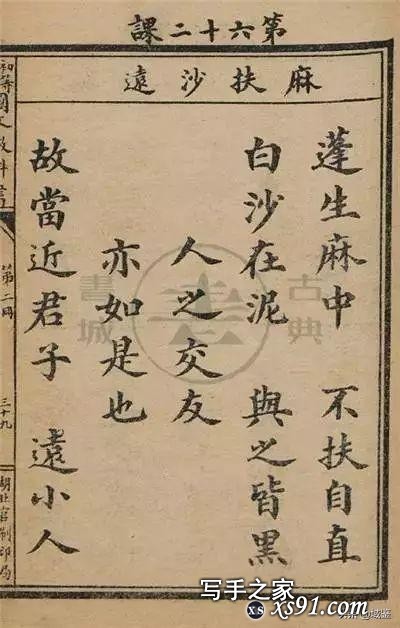 第六十二課
麻扶沙遠
蓬生麻中 不扶自直
白沙在泥 與之皆黑
人之交友
亦如是也
故當近君子 遠小人
初等國文教科書
第二冊
三十九
湖北官刷印局
古典
書城
写手之家
XS xs91.com